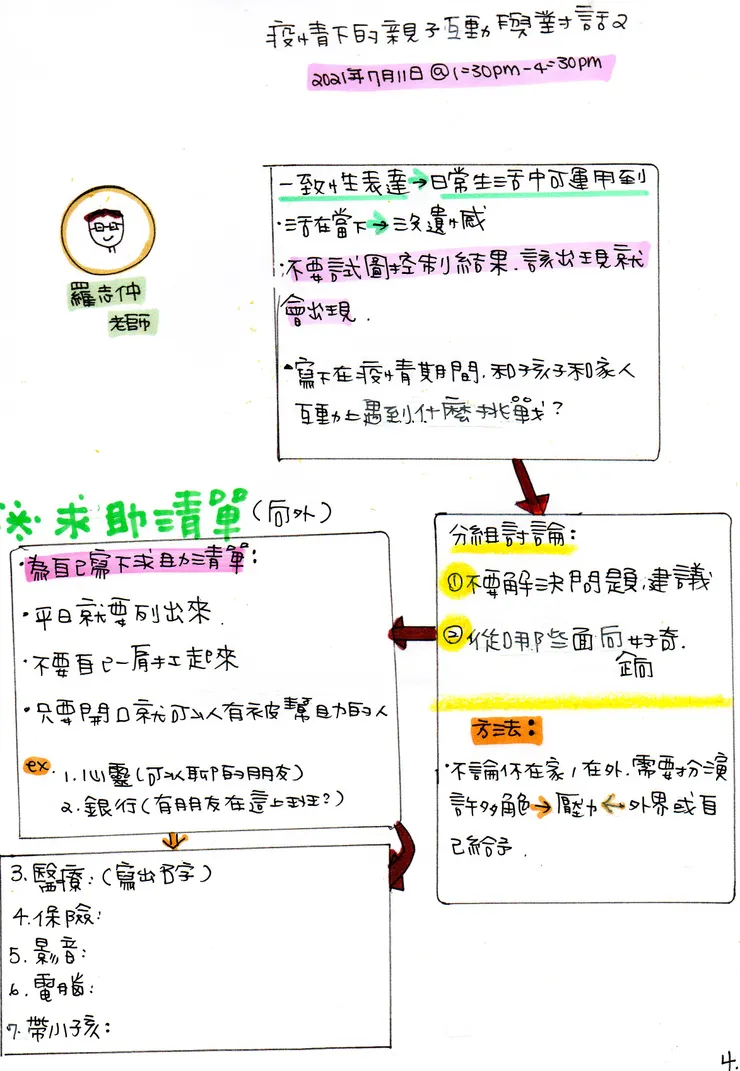 疫情下的親子互動與對話2
2021年7月11日@1=30pm-4=30pm
羅志仲
老師
一致性表達→日常生活中可運用到
·活在當下→沒遺憾
·不要試圖控制結果.該出現就
會出現.
·寫下在疫情期間.和孩子和家人
互動上遇到什麼挑戰?
分組討論:
①不要解決問題.建議
②從哪些面向好奇.
方法:
·不論你在家,在外.需要扮演
許多角色→壓力←外界或自
己給予.
※求助清單(向外)
·為自己寫下求助清單:
·平日就要列出來.
·不要自己一肩扛起來
·只要開口就可以有被幫助的人
ex.1.心靈(可以聊的朋友)
2.銀行(有朋友在這上班?)
3.醫療:(寫出名字)
4.保險:
5.影音:
6.電腦:
7.帶小孩:
4.